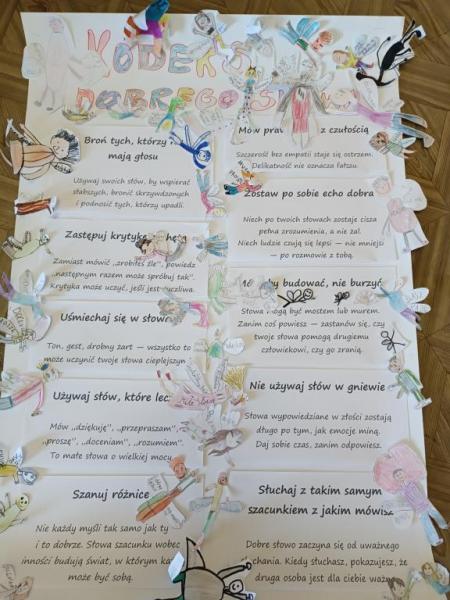 KODEKS
DOBREGO
Broń tych, którzy
mają głosu
Używaj swoich słów, by wspierać
słabszych, bronić skrzywdzonych
i podnosić tych, którzy upadli.
Zastępuj krytykę
Zamiast mówić „zrobiłeś źle”, powiedz
„następnym razem może spróbuj tak”.
Krytyka może uczyć, jeśli jest
Uśmiechaj się w
Ton, gest, drobny żart — wszystko to
może uczynić twoje słowa cieplejszym
Używaj słów, które
Mów „dziękuję”, „przepraszam”,
„proszę”, „doceniam”, „rozumiem”.
To małe słowa o wielkiej mocy.
Szanuj różnice
Nie każdy myśli tak samo jak ty
i to dobrze. Słowa szacunku wobec
inności budują świat, w którym
może być sobą.
Mów z czułością
Szczerość bez empatii staje się ostrzem.
Delikatność nie oznacza fałszu.
Zostaw po sobie echo dobra
Niech po twoich słowach zostaje cisza
pełna zrozumienia, a nie żal.
Niech ludzie czują się lepsi — nie mniejsi
— po rozmowie z tobą.
budować, nie burzyć
Słowa mogą być mostem lub murem.
Zanim coś powiesz — zastanów się, czy
twoje słowa pomogą drugiemu
człowiekowi, czy go zranią.
Nie używaj słów w gniewie
Słowa wypowiedziane w złości zostają
długo po tym, jak emocje miną.
Daj sobie czas, zanim odpowiesz.
Słuchaj z takim samym
szacunkiem z jakim mówisz
Dobre słowo zaczyna się od uważnego
słuchania. Kiedy słuchasz, pokazujesz, że
druga osoba jest dla ciebie